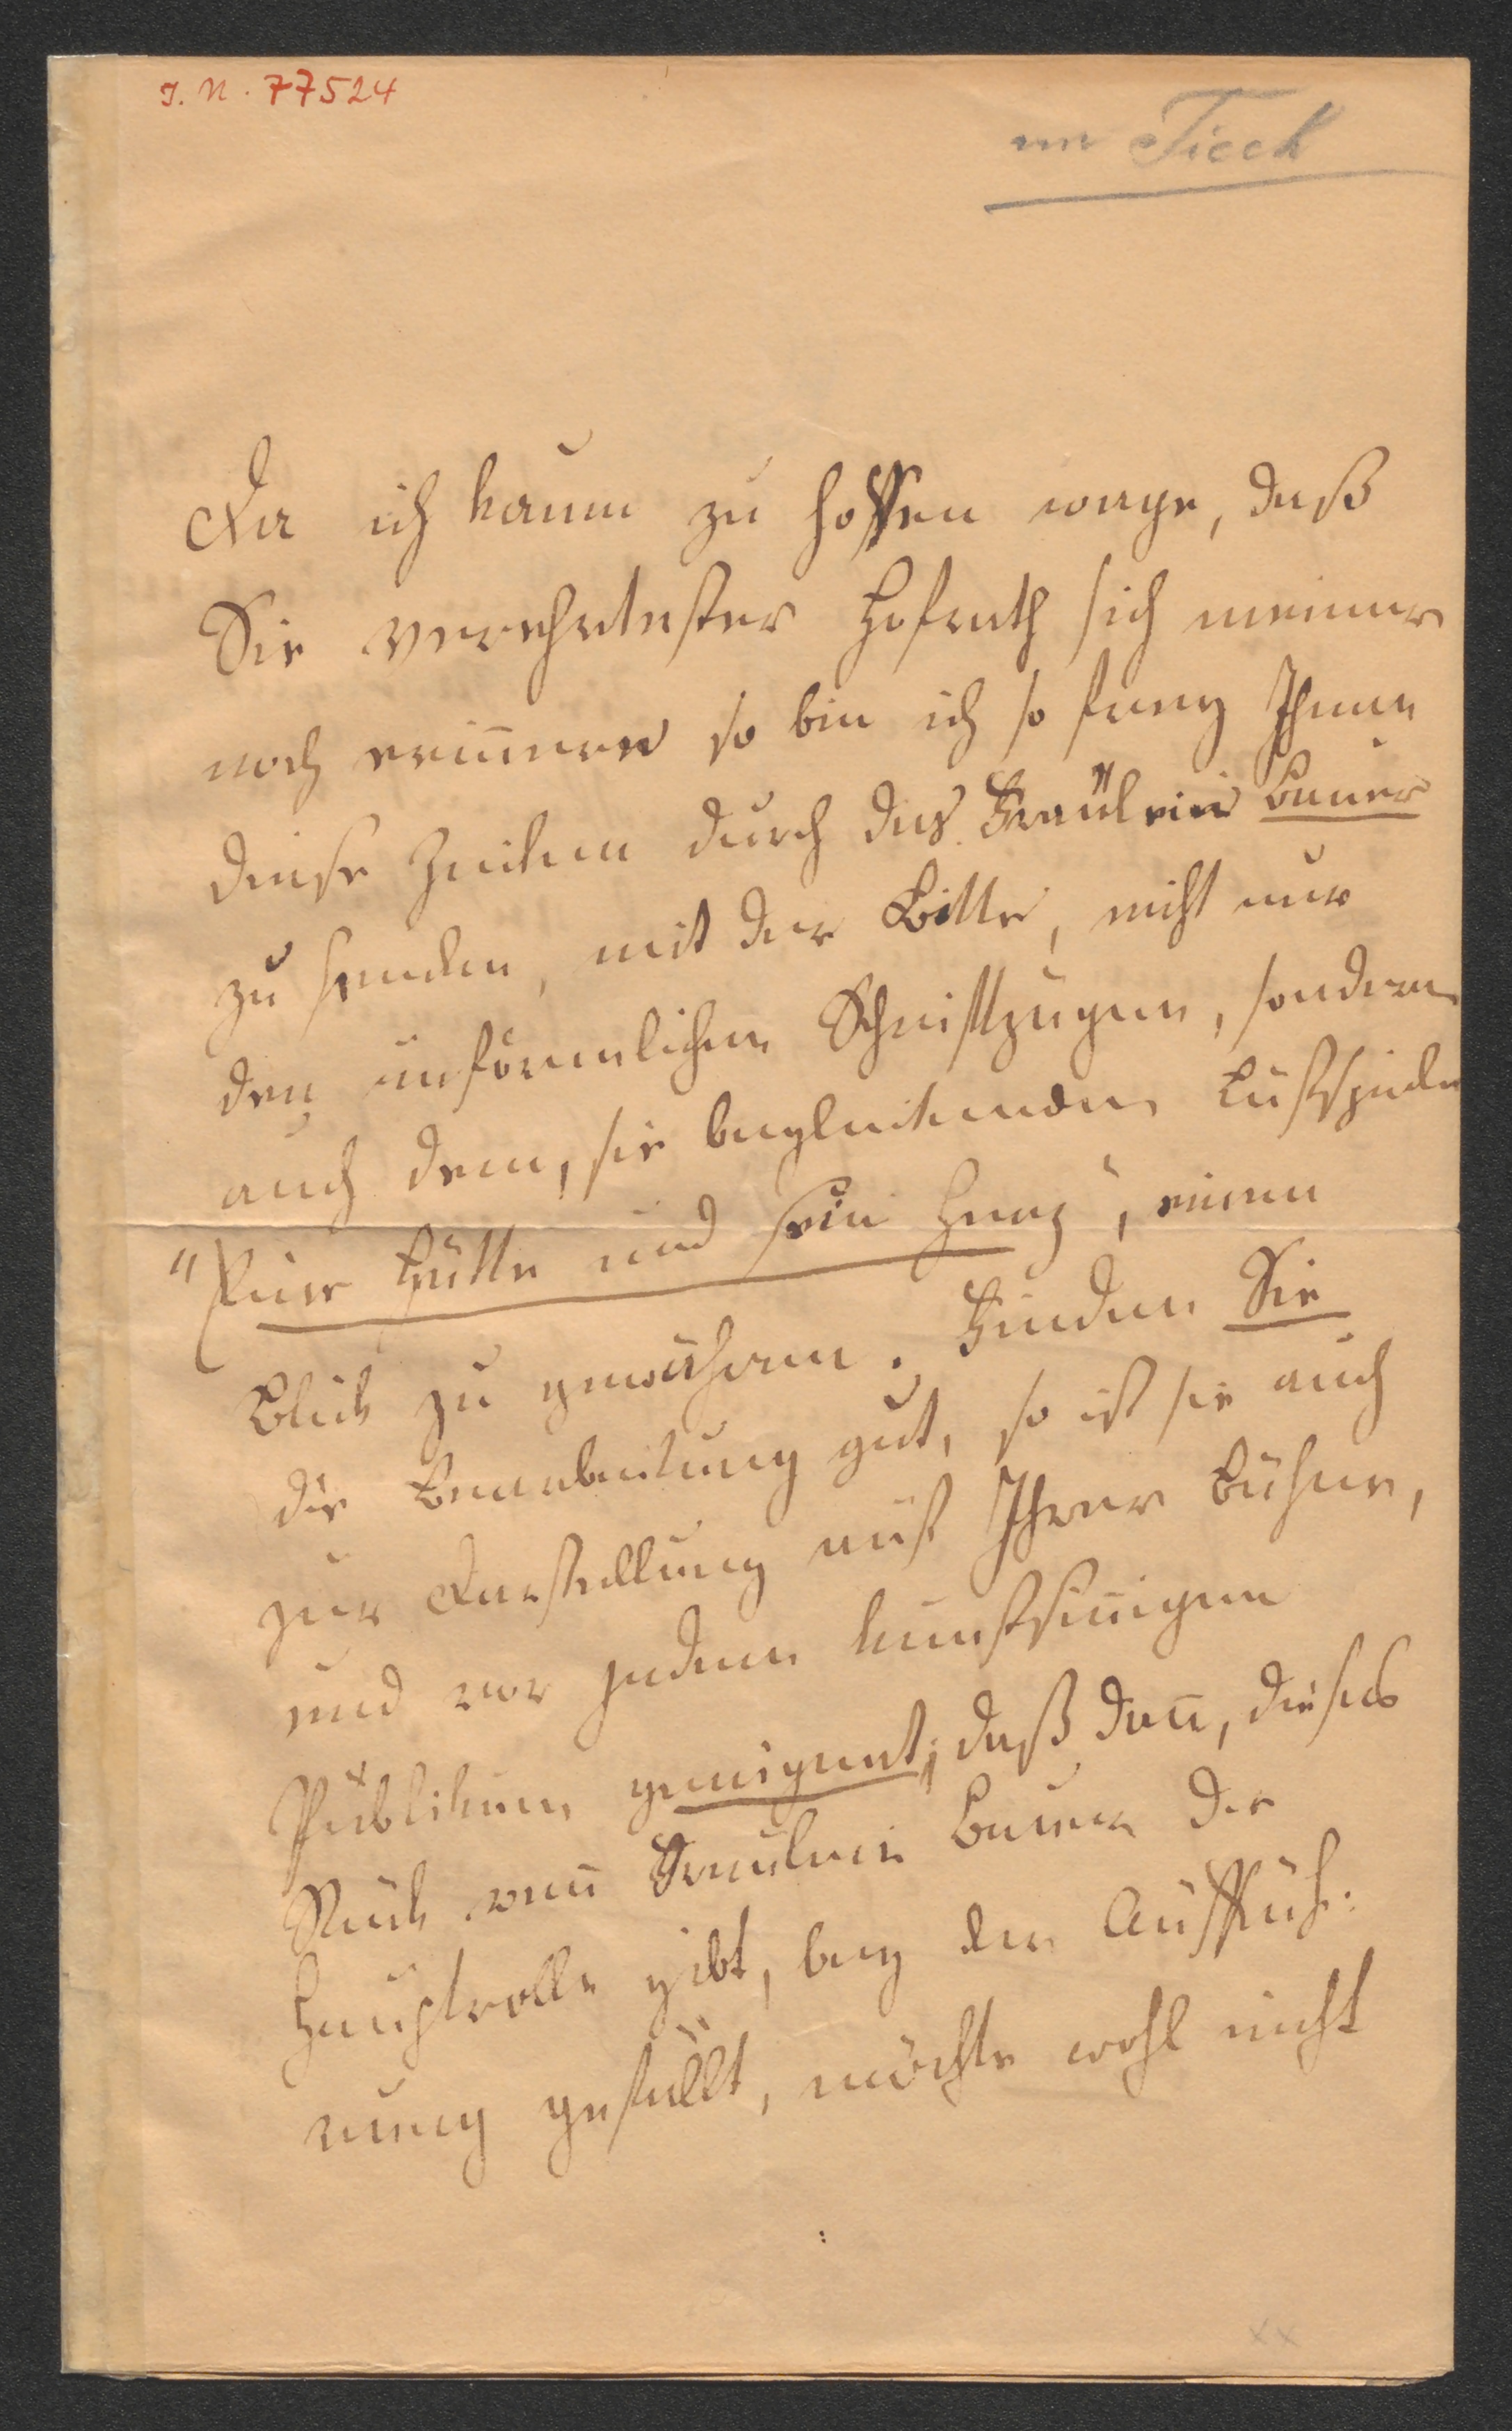 I. N. 77524
an Tieck
Da ich kaum zu hoffen wage, daß
Sie verehrtester Hofrath sich meiner
noch erinnern so bin ich so frey Ihnen
diese Zeilen durch das Fräulein Bauer
zu senden, mit der Bitte, nicht nur
den unförmlichen Schriftzügen, sondern
auch dem, sie begleitenden Lustspiele
"Eine Hütte und sein Herz", einen
Blick zu gewähren. Finden Sie
die Bearbeitung gut, so ist sie auch
zur Darstellung auf Ihrer Bühne,
und vor jedem kunstsinnigen
Publikum geeignet; daß dan̄, dieses
Stück wen̄ Fräulein Bauer die
Hauptrolle gibt, bey der Auffüh:
rung gefällt, möchte wohl nicht
xx